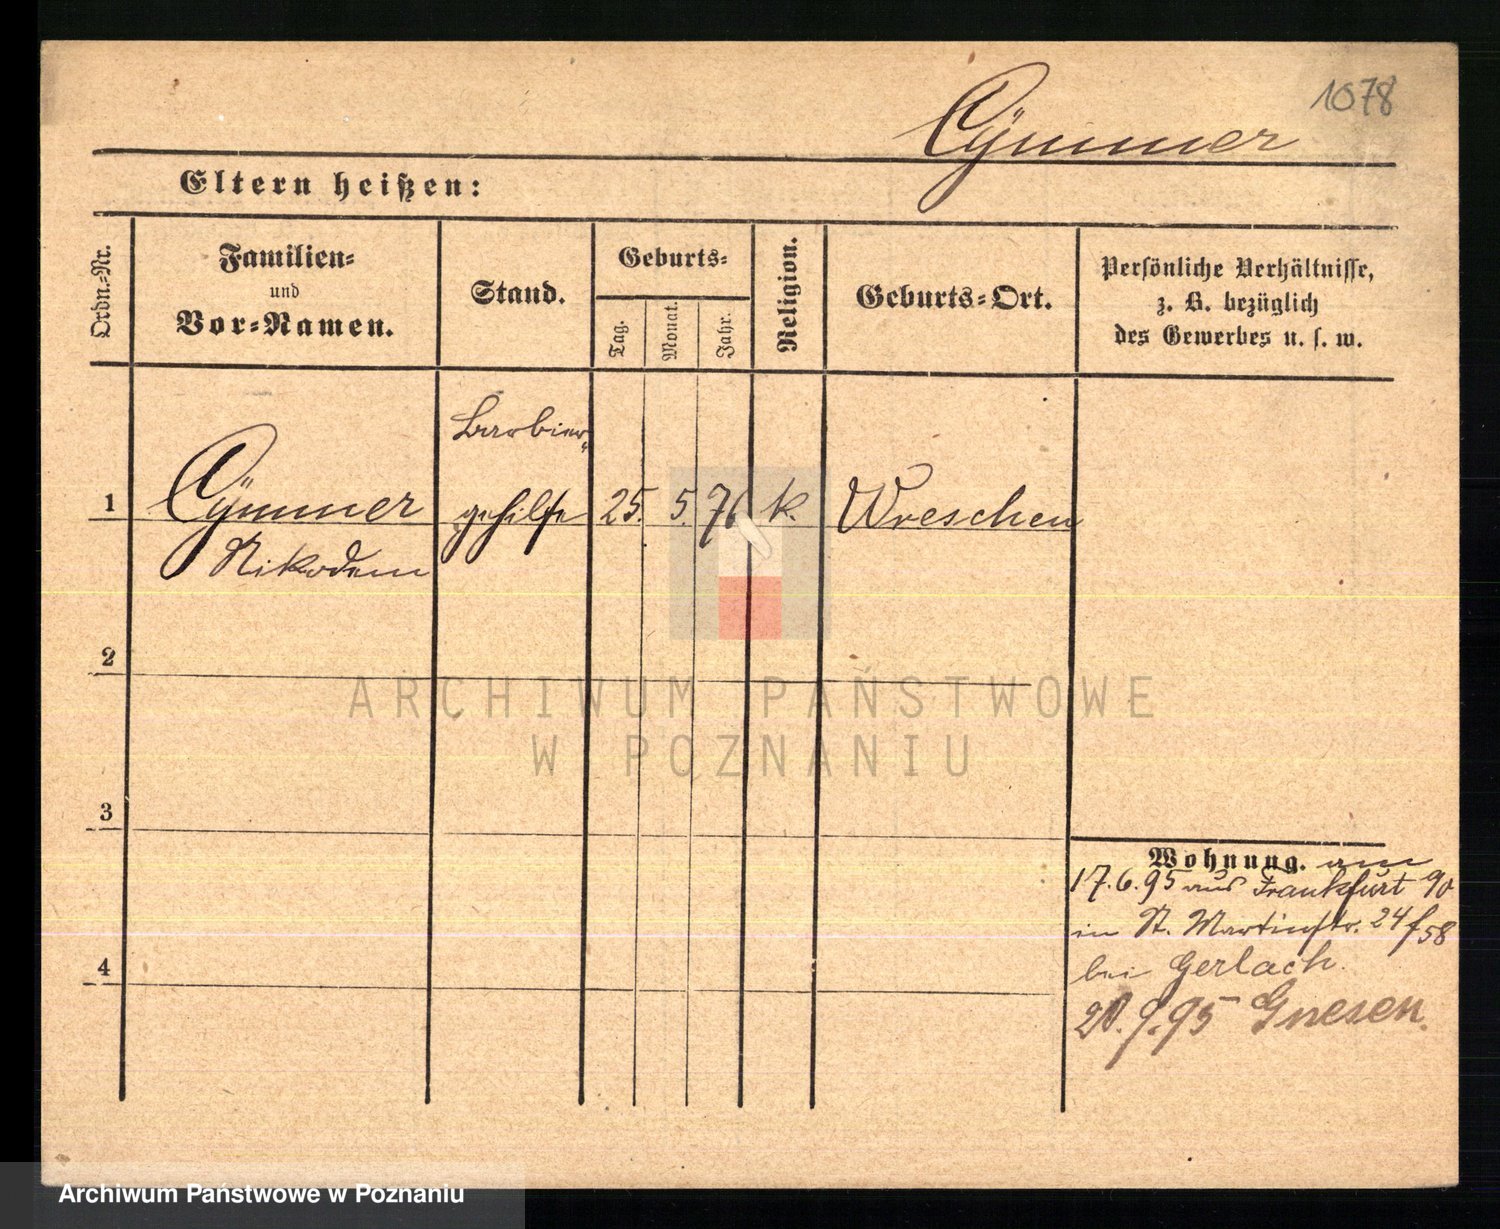 1078
Cÿmmer
Eltern heißen:
Ordn.-Nr.
Familien-
und
Vor-Namen.
Stand.
Geburts-
Tag.
Monat.
Jahr.
Religion.
Geburts-Ort.
Persönliche Verhältnisse,
z. B. bezüglich
des Gewerbes u. s. w.
Barbier-
1 Cÿmmer gehilfe 25. 5. 76 k. Wreschen
Nikodem
2
ARCHIWUM PAŃSTWOWE
W POZNANIU
3
Wohnung. am
17.6.95 aus Frankfurt
in St. Martinstr. 24
4
bei Gerlach.
20.9.95 Gnesen.
Archiwum Państwowe w Poznaniu